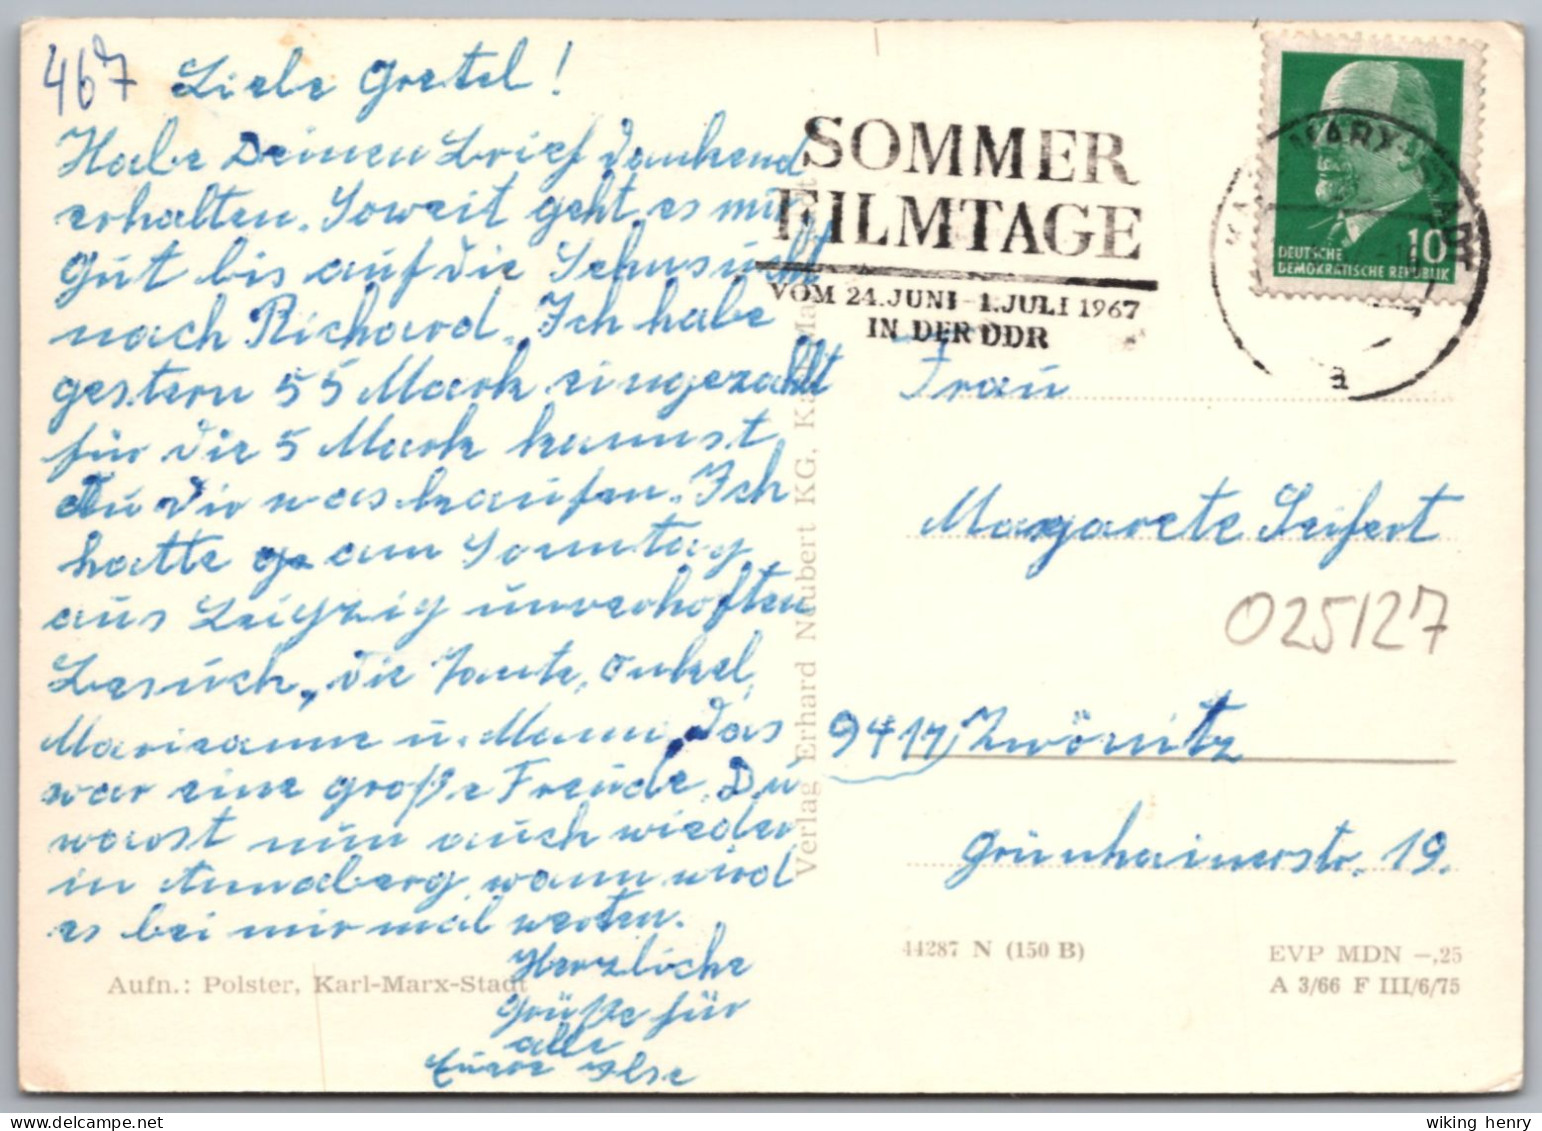 467 Liebe Gretel!
Habe Deinen Brief dankend
erhalten. Soweit geht es mir
gut bis auf die Sehnsucht
nach Richard. Ich habe
gestern 55 Mark eingezahlt
für die 5 Mark kannst
du dir was kaufen. Ich
hatte am Sonntag
aus Leipzig unverhofften
Besuch, die Tante, Onkel,
Marieanne u. Mann, das
war eine große Freude. Du
warst nun auch wieder
in Annaberg wann wird
es bei mir mal werden.
Herzliche
Grüße für
alle
Eure Ilse
Aufn.: Polster, Karl-Marx-Stadt
Verlag Erhard Neubert KG, Karl-Marx-Stadt
SOMMER
FILMTAGE
VOM 24. JUNI - 1. JULI 1967
IN DER DDR
KARL-MARX-STADT
a
10
DEUTSCHE
DEMOKRATISCHE REPUBLIK
Frau
Margarete Seifert
025127
9417 Zwönitz
Grünhainerstr. 19.
44287 N (150 B)
EVP MDN –,25
A 3/66 F III/6/75
wiking henry